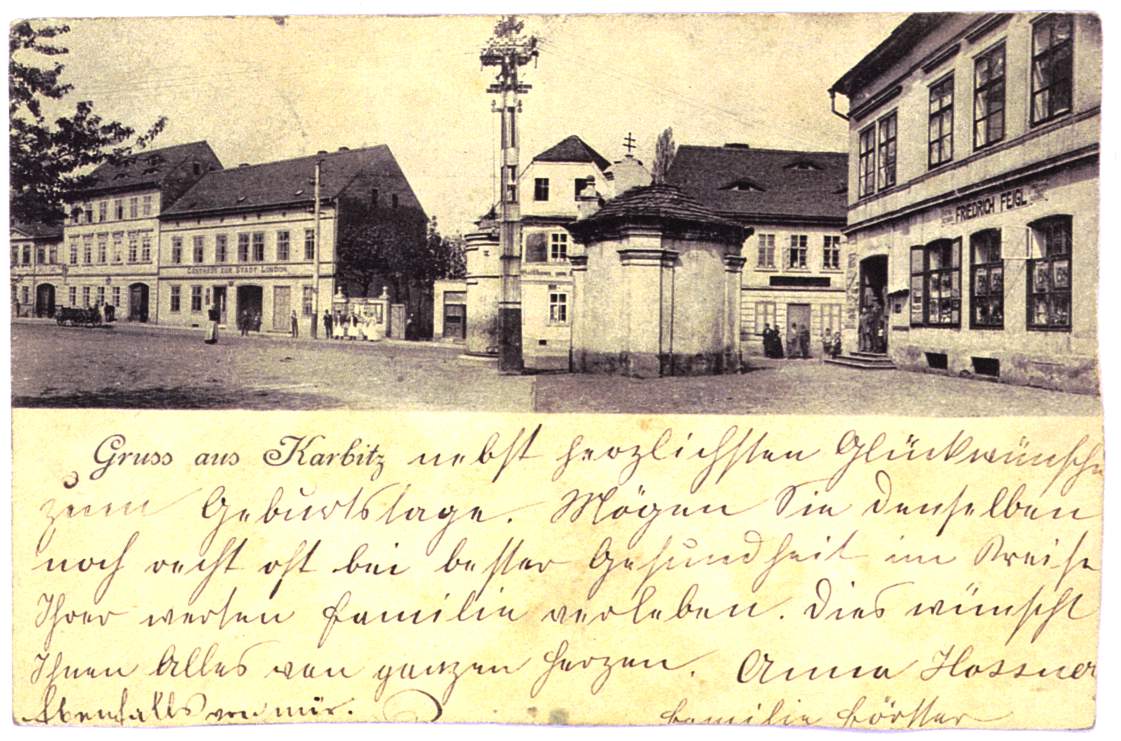 GASTHAUS ZUR STADT LONDON
FRIEDRICH FEIGL
Gruss aus Karbitz nebst herzlichsten Glückwünsche
zum Geburtstage. Mögen Sie denselben
noch recht oft bei bester Gesundheit im Kreise
Ihrer werten Familie verleben. Dies wünscht
Ihnen Alles von ganzen Herzen. Anna Hossner
Ebenfalls von mir.
Familie